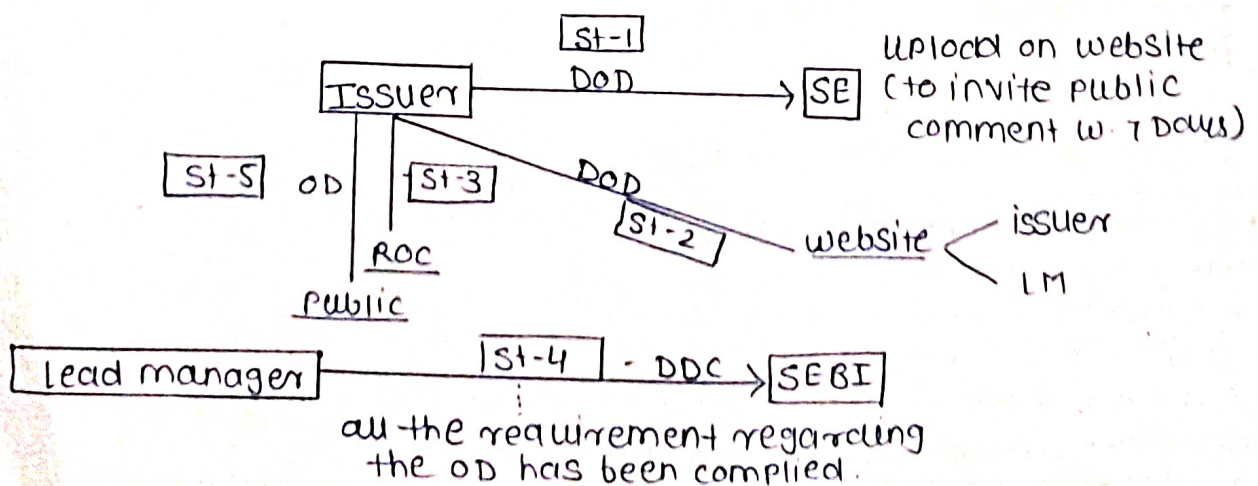 St-1
Issuer
DOD
SE
upload on website
(to invite public
comment w. 7 Days)
St-5
OD
St-3
DOD
St-2
ROC
public
website
issuer
LM
Lead manager
St-4
- DDC
SEBI
all the requirement regarding
the OD has been complied.